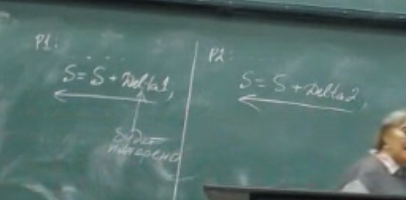 P1:
S = S + Delta1,
P2:
S = S + Delta2,